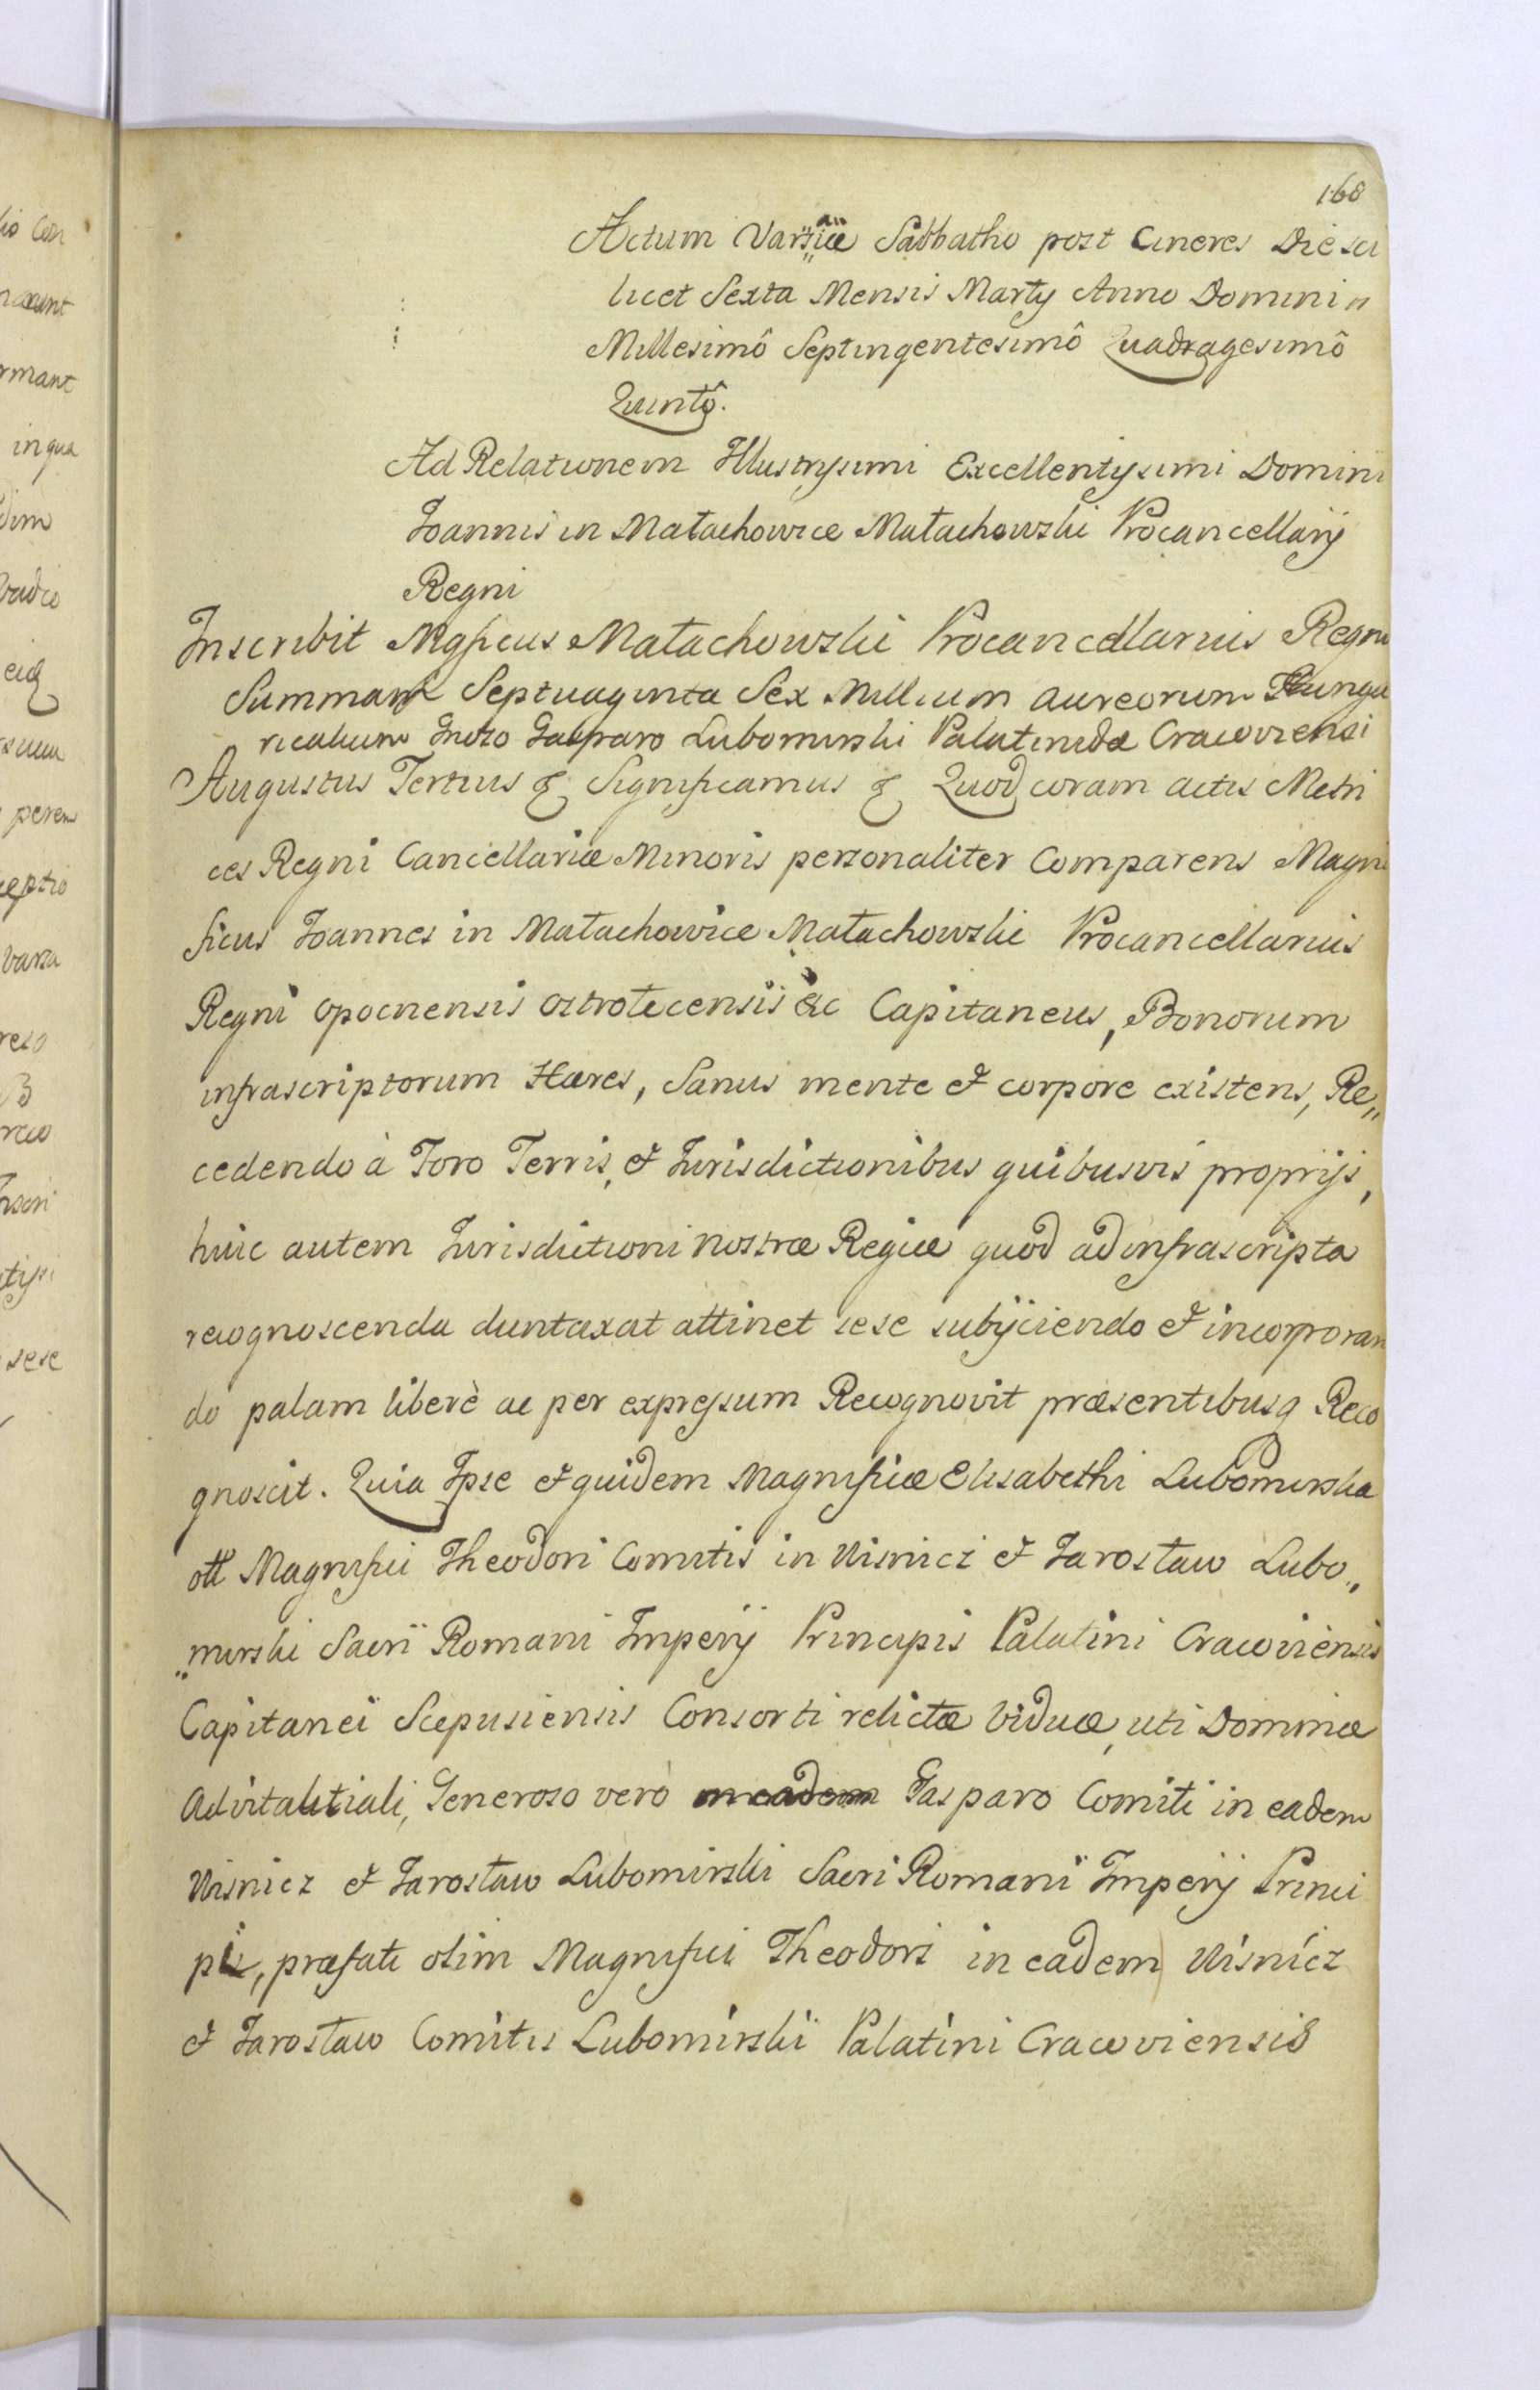 168
Actum Varsaviæ Sabbatho post Cineres Die sci
licet Sexta Mensis Martÿ Anno Domini
Millesimô Septingentesimô Quadragesimô
Quintô.
Ad Relationem Illustrissimi Excellentissimi Domini
Joannis in Małachowice Małachowski Procancellarÿ
Regni
Inscribit Mgficus Małachowski Procancellarius Regni
Summam Septuaginta Sex Millium aureorum Hunga
ricalium Gnoso Gasparo Lubomirski Palatinidæ Cracoviensi
Augustus Tertius & Significamus & Quod coram actis Metri
ces Regni Cancellariæ Minoris personaliter Comparens Magni
ficus Joannes in Małachowice Małachowski Procancellarius
Regni Opocnensis Ostrołecensis &c Capitaneus, Bonorum
infrascriptorum Hæres, Sanus mente & corpore existens, Re„
cedendo à Foro Terris, & Jurisdictionibus quibusvis proprijs,
huic autem Jurisdictioni nostræ Regiæ quod ad infrascripta
recognoscenda duntaxat attinet sese subÿciendo & incorporan
do palam liberè ac per expressum Recognovit præsentibusq Reco
gnoscit. Quia Ipse & quidem Magnificæ Elisabethi Lubomirska
olt Magnifici Theodori Comitis in Visnicz & Jarosław Lubo„
„mirski Sacri Romani Imperÿ Principis Palatini Cracoviensis
Capitanei Scepusiensis Consorti relictæ Viduæ, uti Dominæ
Advitalitiali, Generoso verò in eadem Gasparo Comiti in eadem
Visnicz & Jarosław Lubomirski Sacri Romani Imperÿ Princi
pis, præfati olim Magnifici Theodori in eadem Visnicz
& Jarosław Comitis Lubomirski Palatini Cracoviensis